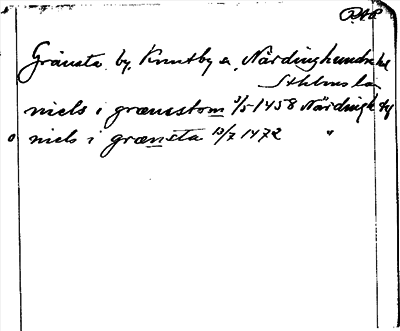 Gränsta by, Knutby s., Närdinghundra hd
Sthlms län
niels i grænstom 3/5 1458 Närdingh ty
niels i grænsta 13/7 1472 "